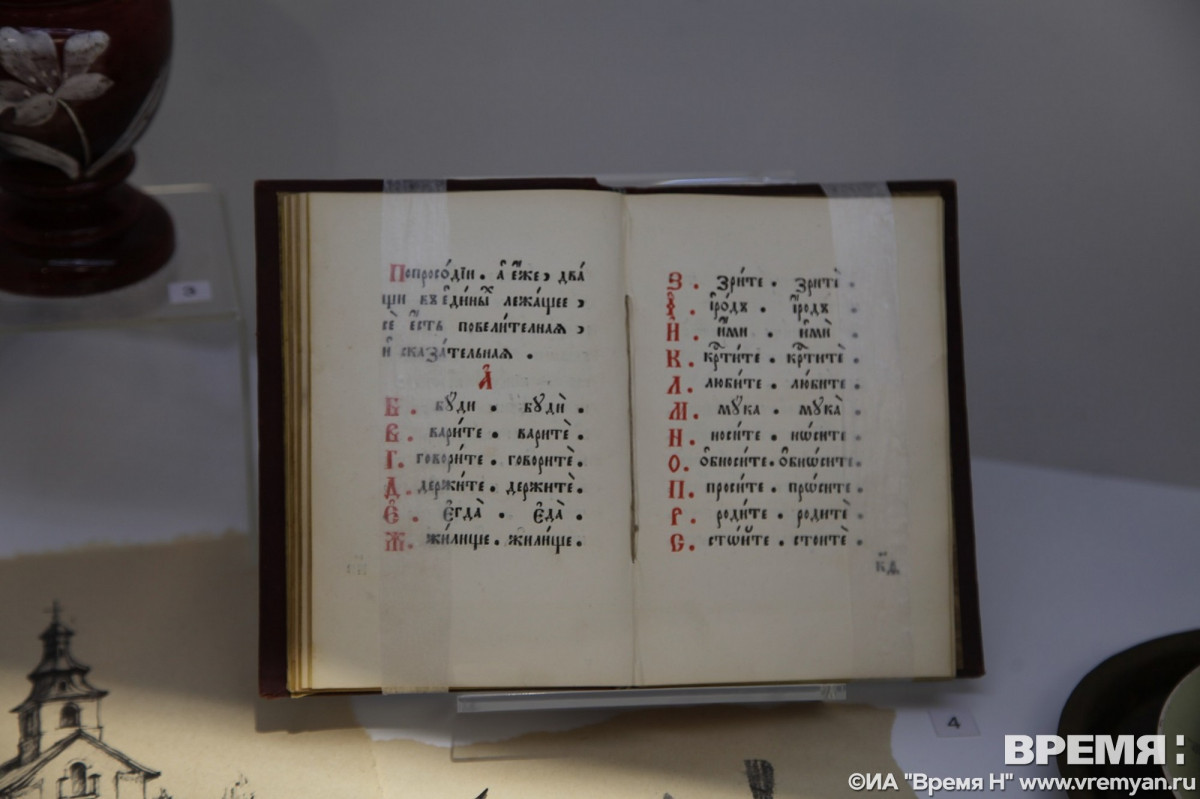 Попросѡ́діи . а҆ є҆́же , два́
щи въ є҆ди́нꙋ лежа́щее ,
сѐ є҆́сть повели́тельнаѧ ,
и҆ сказа́тельнаѧ .
А҆
Б . бꙋ́ди . бꙋдѝ .
В . вари́те . варитѐ .
Г . говори́те . говоритѐ .
Д . держи́те . держитѐ .
Е҆ . є҆гда̀ . є҆да̀ .
Ж . жи́лище . жили́ще .
З . зри́те . зритѐ .
І҆ . і҆ро́дъ . і҆́родъ .
И҆ . и҆́ми . и҆мѝ .
К . крⷭ҇ти́те . крⷭ҇титѐ .
Л . люби́те . лю́бите .
М . мꙋ́ка . мꙋка̀ .
Н . носи́те . нѡ́сите .
О . ѻ҆бноси́те . ѻ҆бнѡ́сите .
П . проси́те . прѡ́сите .
Р . роди́те . родитѐ .
С . стѡ́ите . стоитѐ .
кд
3
4
ВРЕМЯ:
©ИА "Время Н" www.vremyan.ru